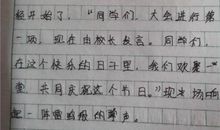 经开始了，“同学们，大会进行第
一项，现在由校长发言。同学们，
在这个快乐的日子里，我们欢聚一
堂，共同庆祝这个节日。”现场响
起一阵雷鸣般的掌声。